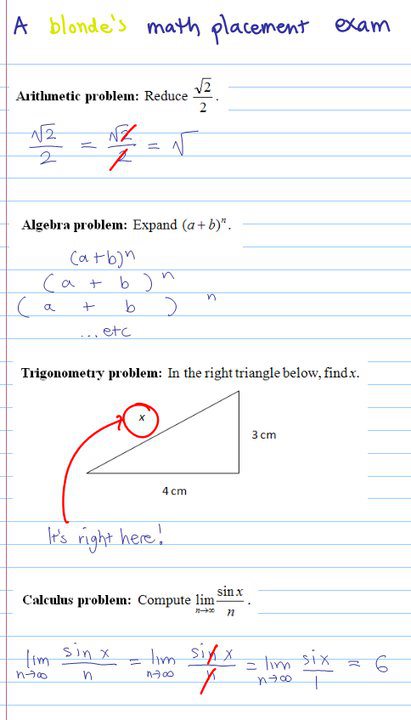 A blonde's math placement exam
Arithmetic problem: Reduce √2/2.
√2/2 = √2/2 = √
Algebra problem: Expand (a+b)ⁿ.
(a+b)ⁿ
(a + b)ⁿ
(a + b)ⁿ
...etc
Trigonometry problem: In the right triangle below, find x.
x
3 cm
4 cm
It's right here!
Calculus problem: Compute lim n→∞ sin x/n.
lim n→∞ sin x/n = lim n→∞ sin x/n = lim n→∞ six/1 = 6